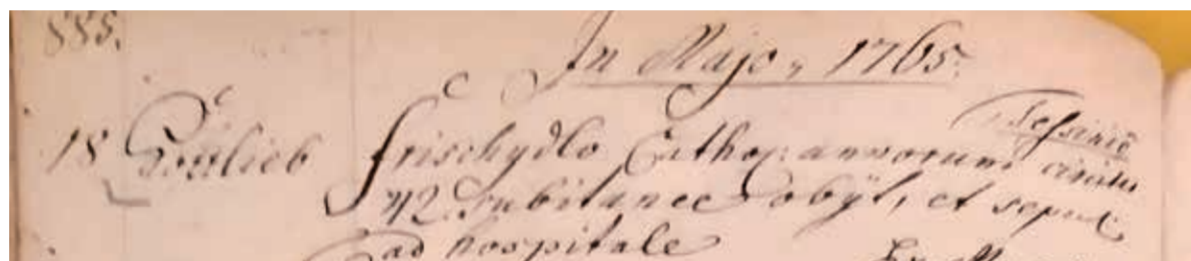 885.
In Majo, 1765.
18 Gottlieb Frischydlo Cathop: annorum circiter
42 Subitanee obÿt, et sepul:
ad hospitale